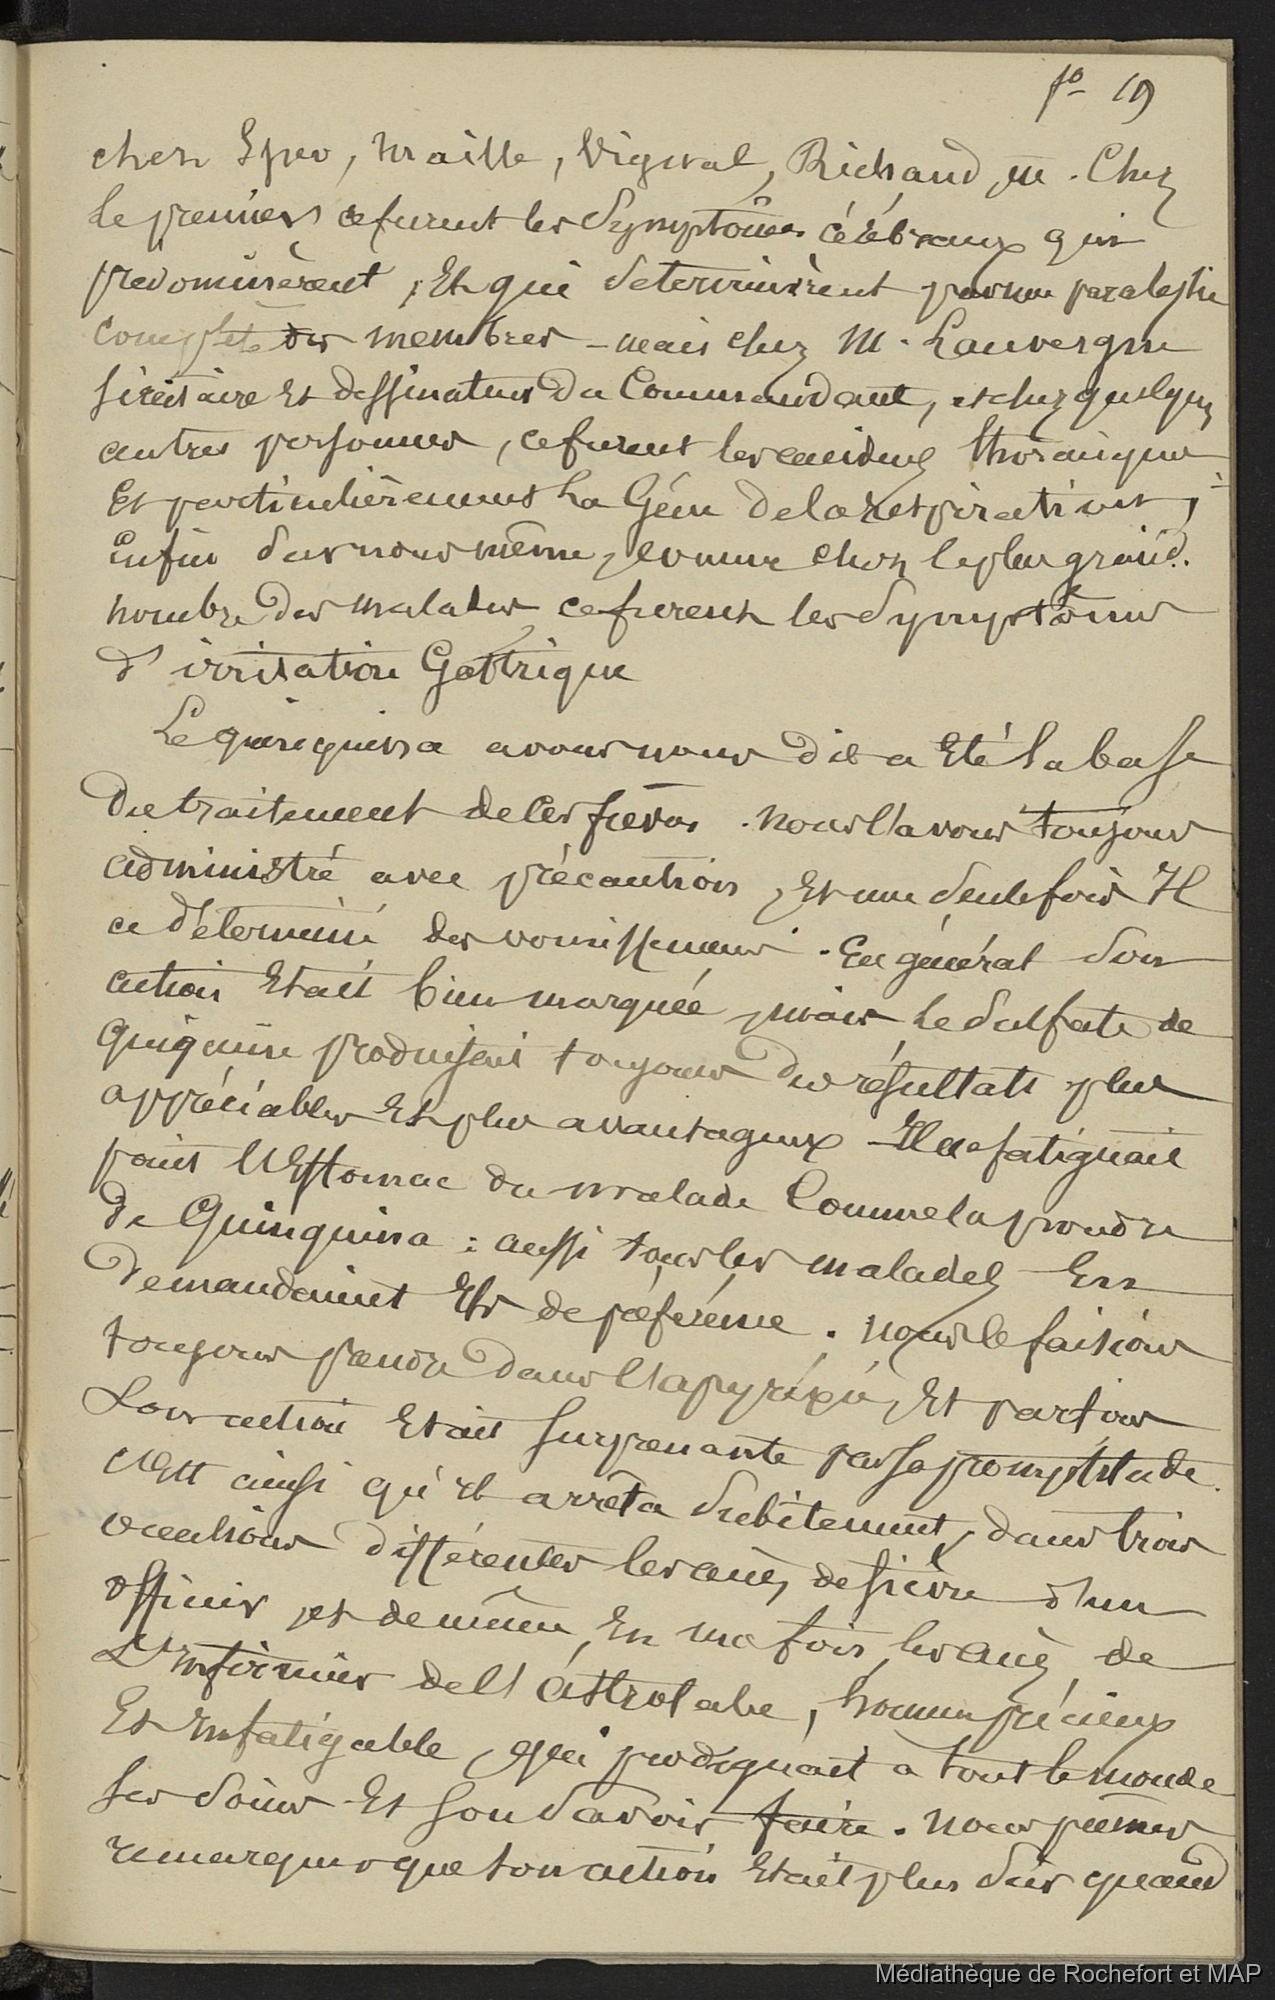 fo 19
chez Speo, Maille, Vignal, Richaud, . Chez
le premiers ce furent les Symptômes cérébraux qui
prédominèrent, Et qui determinèrent paralysie
complète des membres - mais chez M. Lauvergne
Sécrétaire Et dessinateur Du Commandant, et chez quelques
autres personnes, ce furent les accidens thoraciques
Et particulièrement La Gêne de la respiration ;
Enfin Sur nous même, comme chez le plus grand
nombre Des malades ce furent les Symptômes
d'irritation Gastrique
Le quinquina avons nous Dit a Eté la base
Du traitement de Ces fièvres . nous l'avons toujours
administré avec précaution, Et une Seule fois Il
a déterminé des vomissemens . En général Son
action Etait bien marquée, mais le Sulfate de
Quinine produisait toujours Des résultats plus
appréciables Et plus avantageux - Il ne fatiguait
point l'Estomac du malade Comme la poudre
De Quinquina : aussi tous les malades En
Demandaient Ils de préférence . nous le faisions
toujours prendre Dans l'apyréxie, Et parfois
Son action Etait Surprenante par Sa promptitude .
c'Est ainsi qu'il arrêta Subitement, dans trois
occasions différentes les accès de fièvre d'un
officier, et de même En ma fois, les accès de
L'Infirmier de l'Astrolabe, homme précieux
Et Infatigable, qui prodiguait a tout le monde
Ses Soins Et Son Savoir faire . nous pûmes
remarquer que Son action Etait plus Sûr quand
Médiathèque de Rochefort et MAP